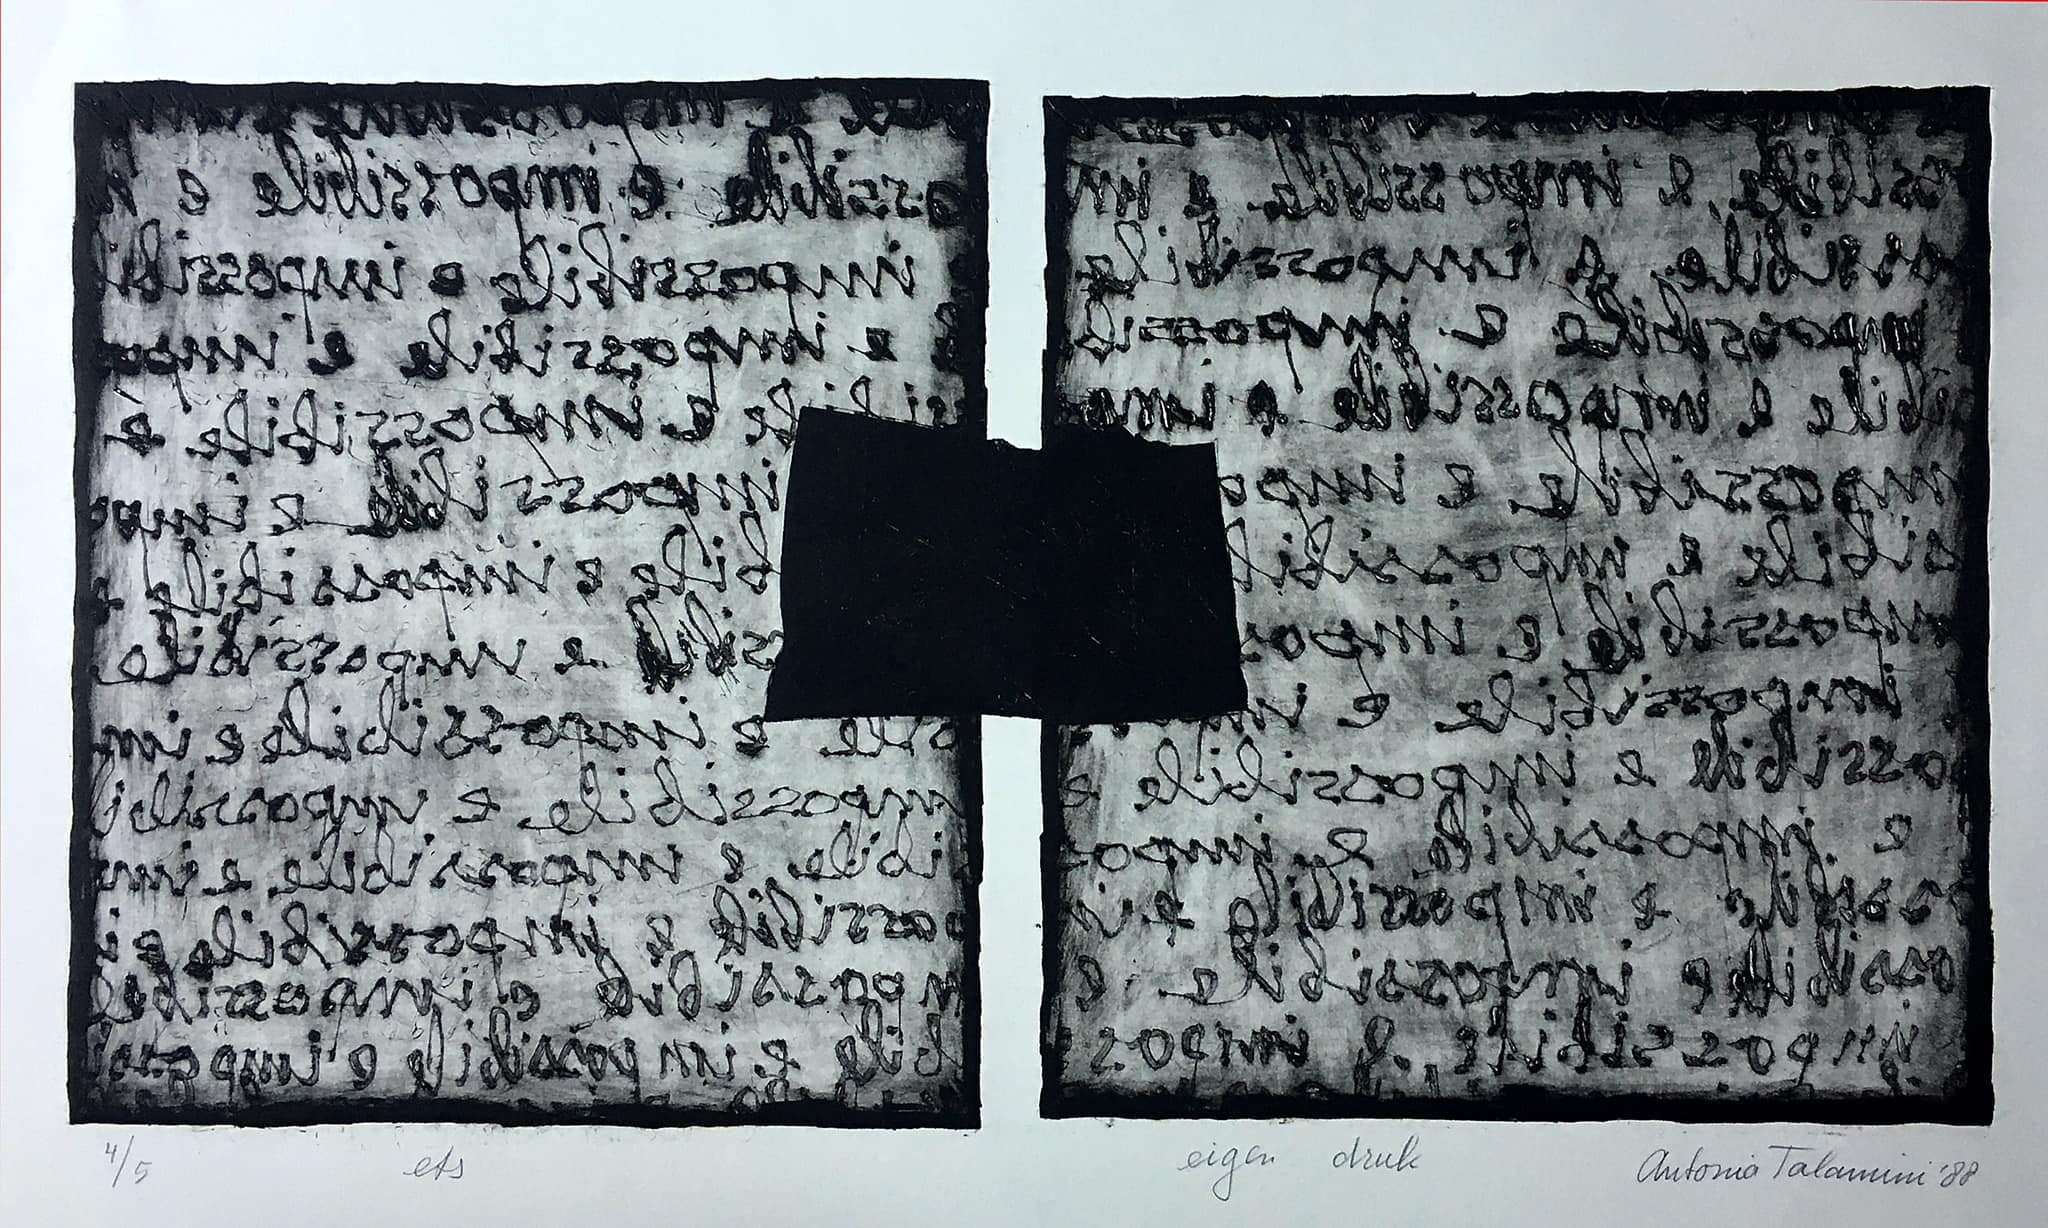 ossibile e impossibile e
e impossibile e impossibil
e impossibile e impo
sibile e impossibile è
impossibile e impo
bile e impossibile e
ssibil e impossibile
bile e impossibile e im
mpossibile e impossibil
ibile e impossibile e im
ossibile e impossibile e i
mpossibile e impossibile
bile e impossibile e impossi
ssibile e impossibile e im
ossibile e impossibile
impossibile e impossib
ibile e impossibile e impo
mpossibile e impo
sibile e impossibil
mpossibile e impos
impossibile e im
ossibile e impossibile e
e impossibile e impos
ossibile e impossibile e i
ossibile e impossibile e
impossibile e impos
4/5 ets eigen druk Antonia Talamini '88